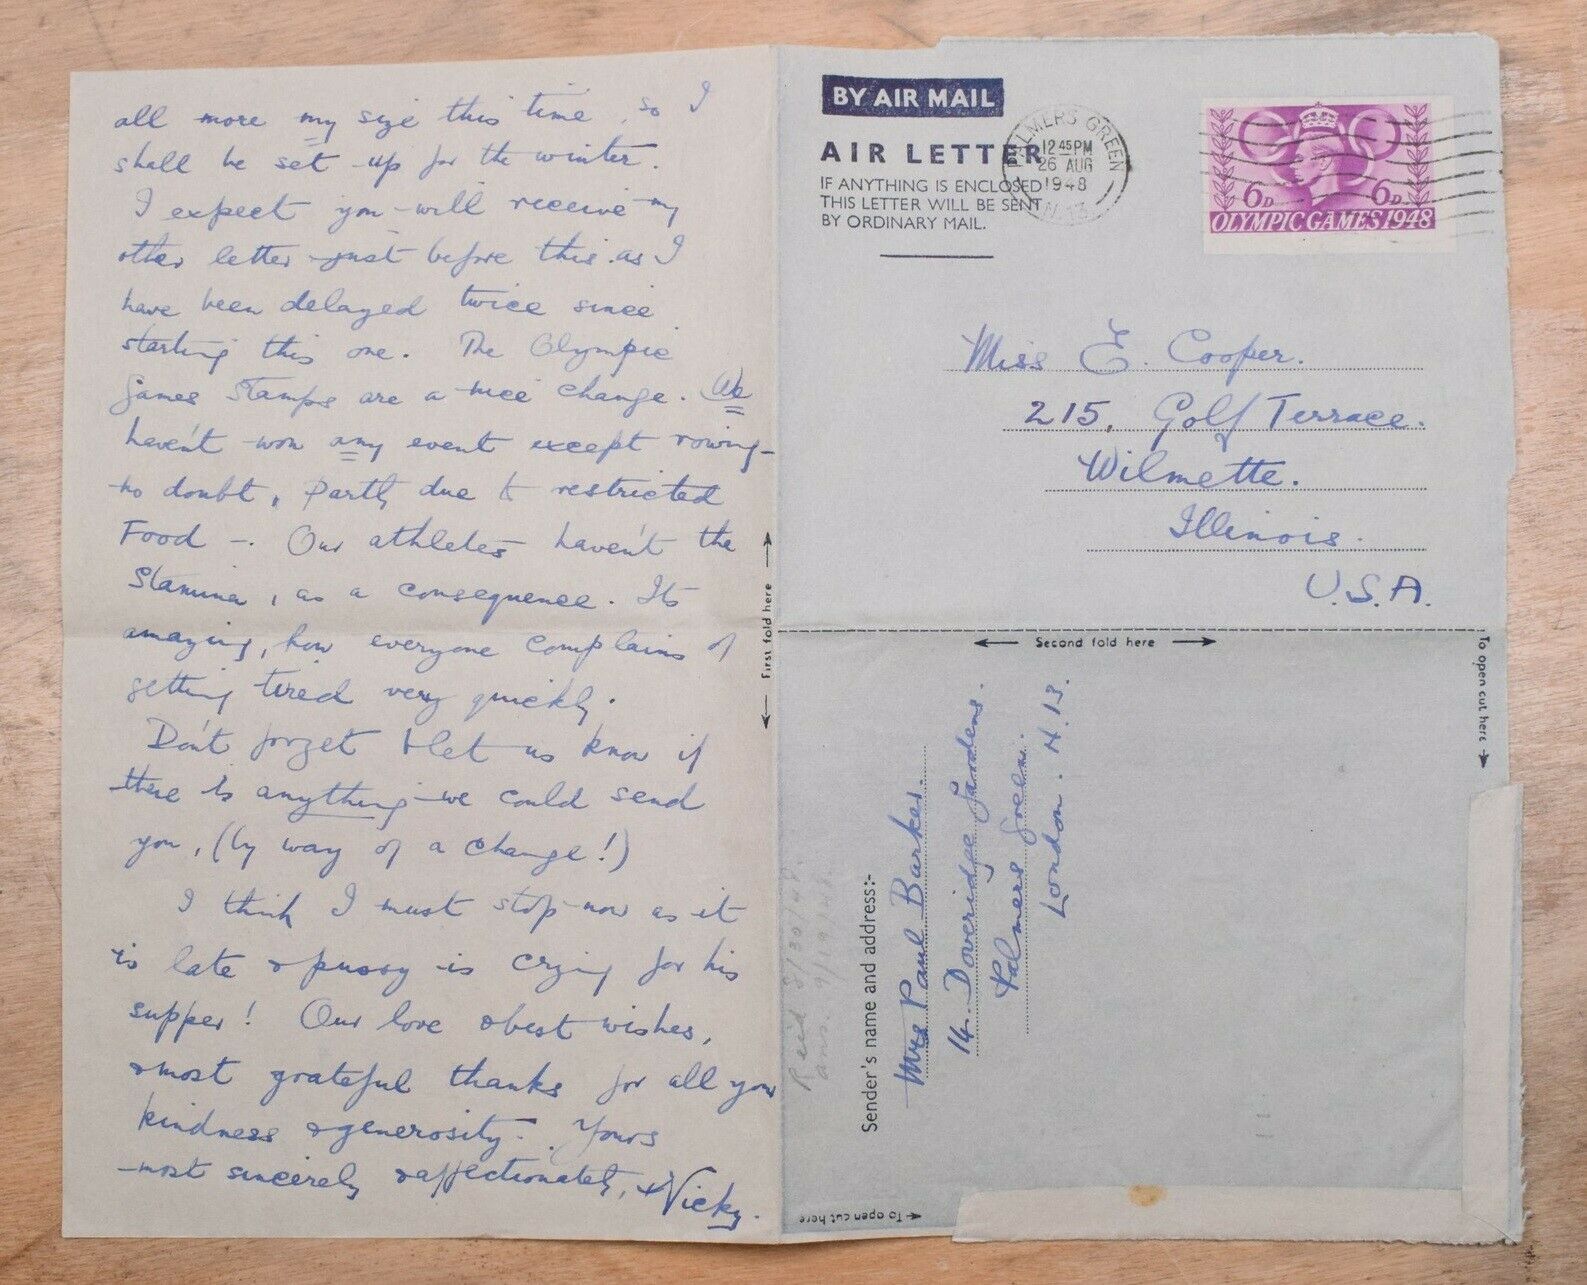 all more my size this time, so I
shall be set up for the winter.
I expect you will receive my
other letter just before this as I
have been delayed twice since
starting this one. The Olympic
Games Stamps are a nice change. We
haven't won any event except rowing -
no doubt, partly due to restricted
Food -. Our athletes haven't the
Stamina, as a consequence. Its
amazing, how everyone complains of
getting tired very quickly.
Don't forget & let us know if
there is anything we could send
you, (by way of a change!)
I think I must stop now as it
is late & pussy is crying for his
supper! Our love & best wishes,
& most grateful thanks for all your
kindness & generosity. Yours
most sincerely & affectionately, Vicky.
First fold here
BY AIR MAIL
AIR LETTER
IF ANYTHING IS ENCLOSED
THIS LETTER WILL BE SENT
BY ORDINARY MAIL.
PALMERS GREEN
12 45 PM
26 AUG
1948
N.13.
6D 6D
OLYMPIC GAMES 1948
Miss E. Cooper.
215, Golf Terrace.
Wilmette.
Illinois.
U.S.A.
Second fold here
To open cut here
Sender's name and address:-
Mrs Paul Barker.
14. Doveridge Gardens.
Palmers Green.
London. N.13.
Rec'd 8/30/48.
ans. 9/19/48.
To open cut here